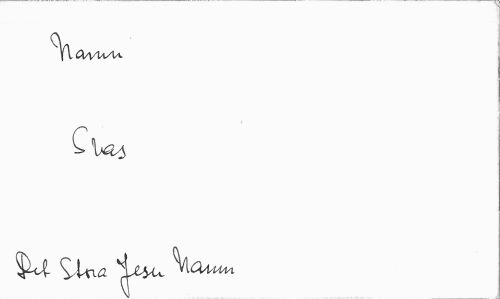 Namn
Svas
Det Stora Jesu Namn